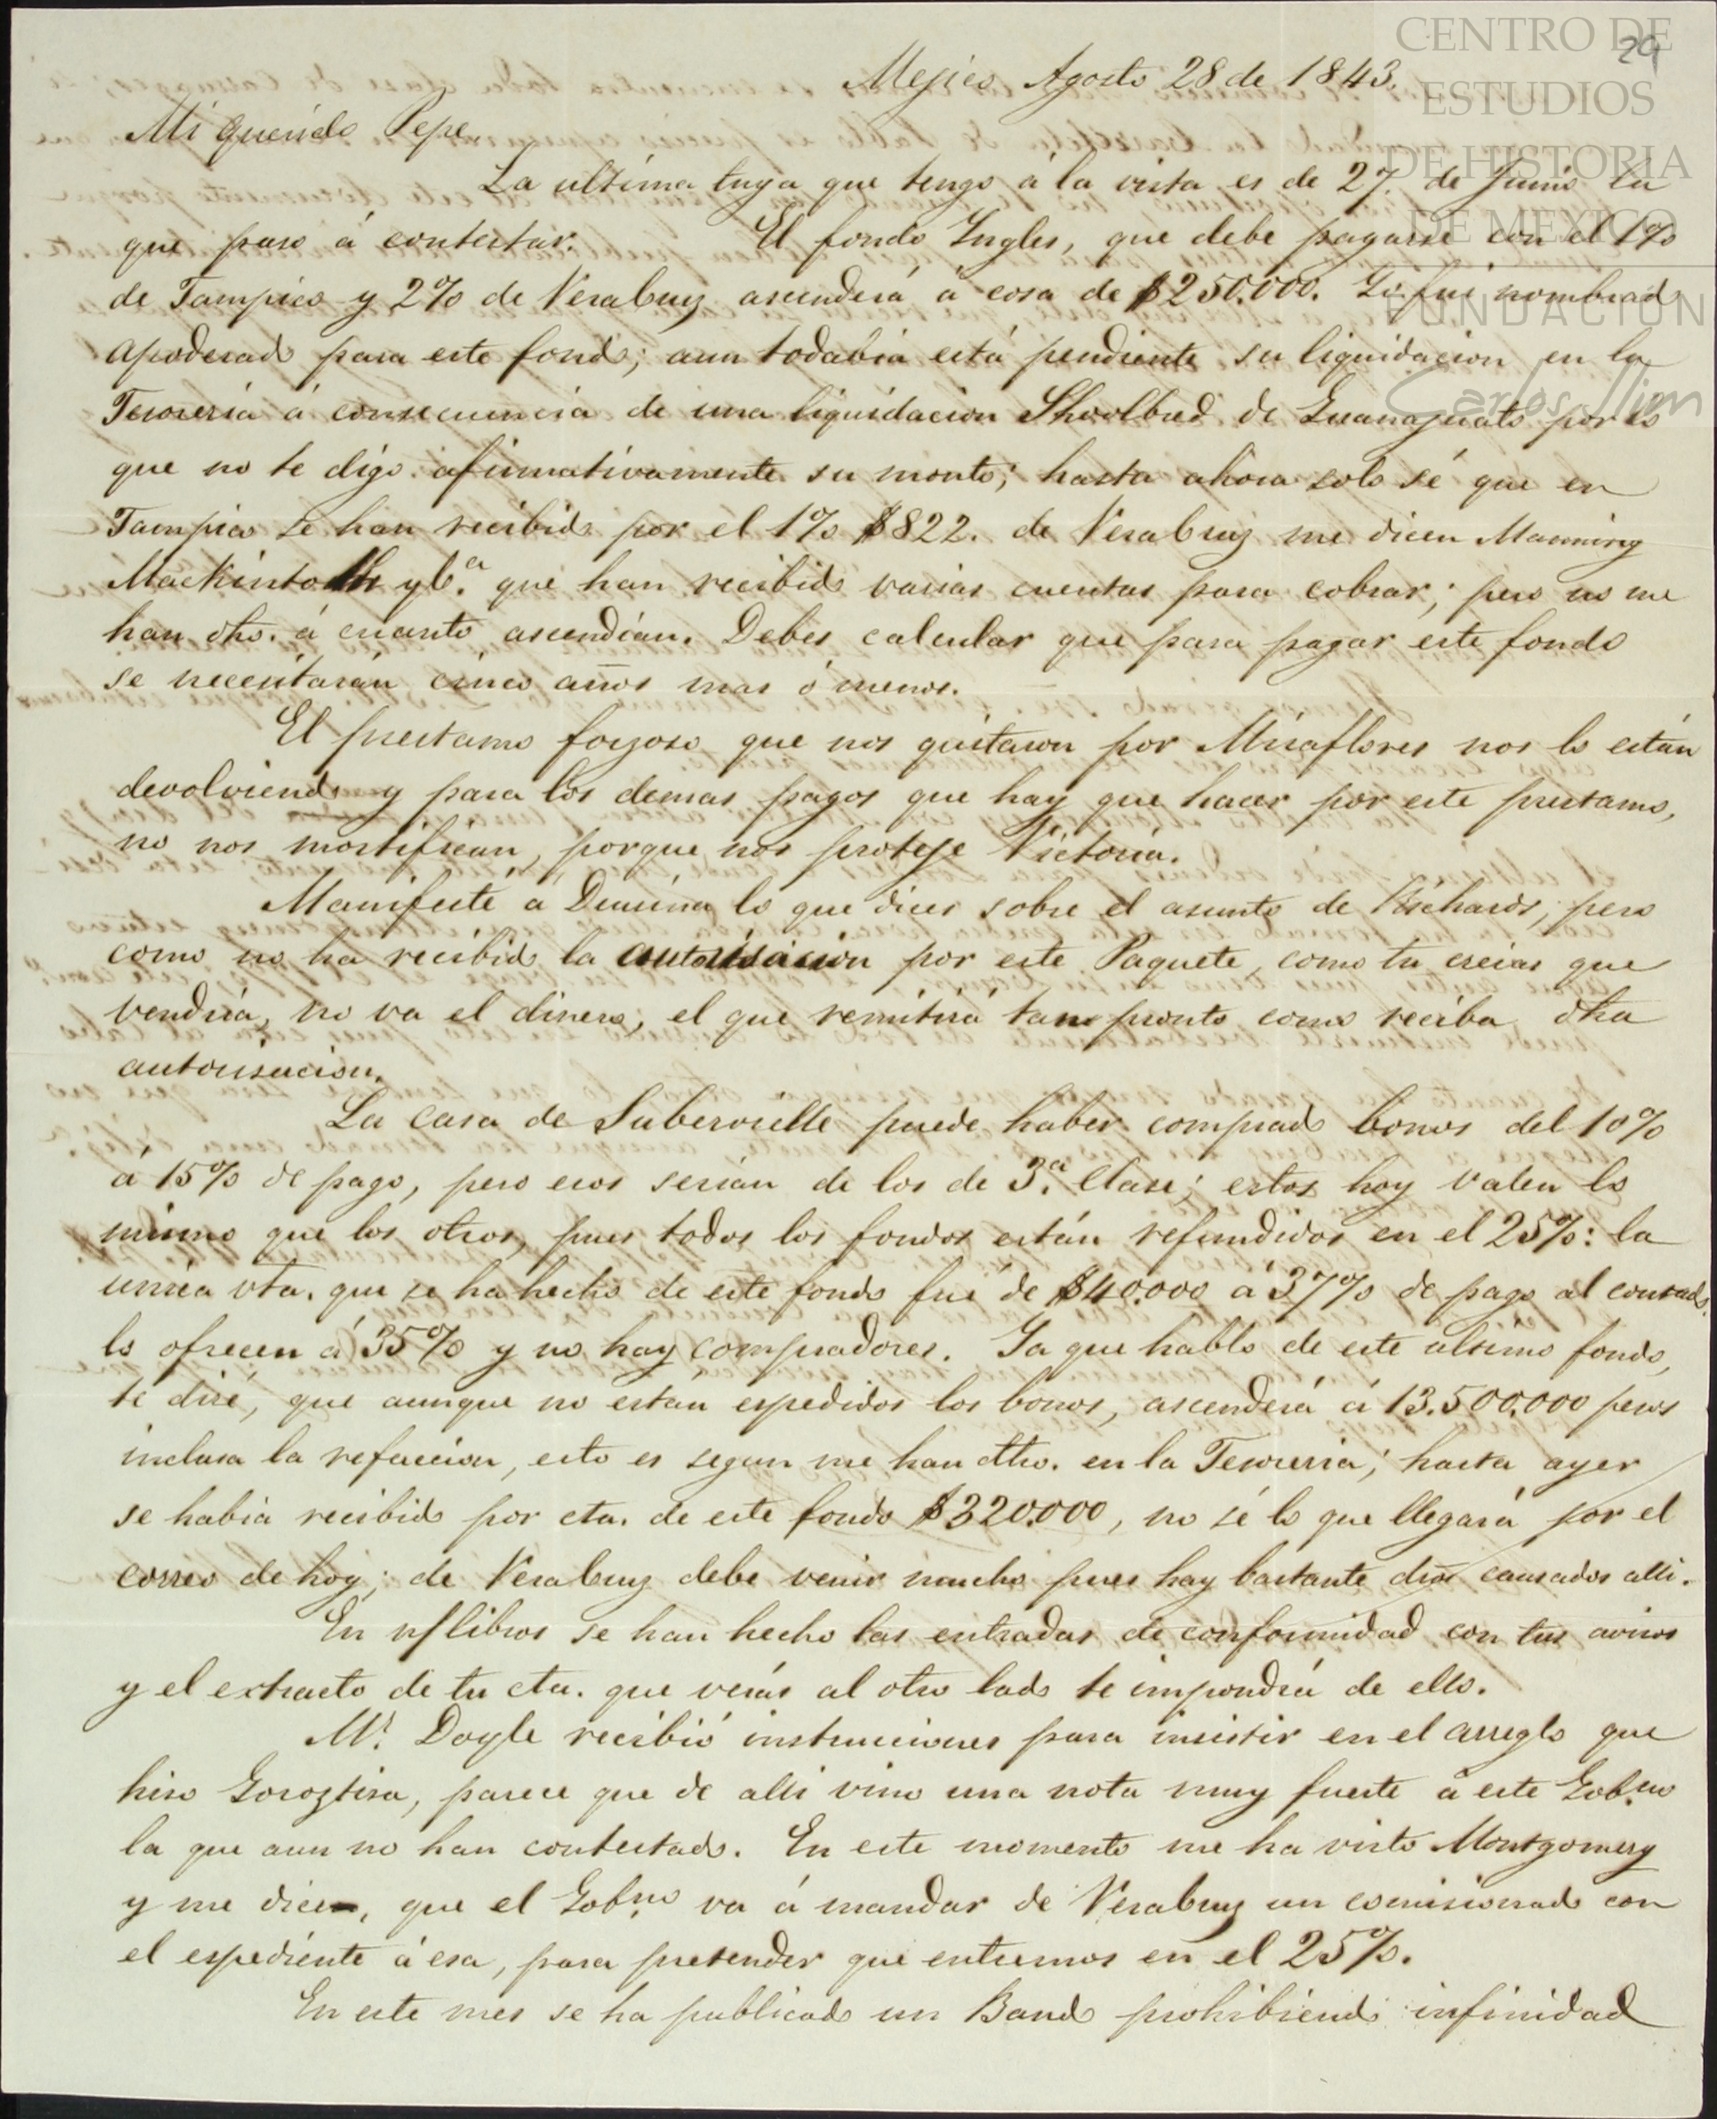 CENTRO DE
ESTUDIOS
DE HISTORIA
DE MEXICO
FUNDACION
Carlos Slim
29
Mejico Agosto 28 de 1843.
Mi querido Pepe
La ultima tuya que tengo á la vista es de 27. de Junio la
que paso á contestar. El fondo Yngles, que debe pagarse con el 1%
de Tampico y 2% de VeraCruz ascenderá á cosa de $250.000. Yo fui nombrado
apoderado para este fondo; aun todabia está pendiente su liquidacion en la
Tesoreria á consecuencia de una liquidacion Shoolbred de Guanajuato por lo
que no te digo afirmativamente su monto; hasta ahora solo sé que en
Tampico se han recibido por el 1% $822. de VeraCruz me dicen Manning
Mackintosh y C.ª que han recibido varias cuentas para cobrar; pero no me
han dho. á cuanto ascendian. Debes calcular que para pagar este fondo
se necesitarán cinco años mas ó menos.
El prestamo forzoso que nos quitaron por Miraflores nos lo están
devolviendo y para los demas pagos que hay que hacer por este prestamo,
no nos mortifican, porque nos proteje Victoria.
Manifesté á la que dices sobre el asunto de Richards; pero
como no ha recibido la autorisacion por este Paquete, como tu creias que
vendria, no va el dinero, el que remitirá tan pronto como reciba dha
autorisacion.
La casa de Subervielle puede haber comprado bonos del 10%
á 15% de pago, pero esos serian de los de 3.ª Clase; estos hoy valen lo
mismo que los otros, pues todos los fondos están refundidos en el 25%: la
unica vta. que se ha hecho de este fondo fué de $40.000 á 37% de pago al contado.
lo ofrecen á 35% y no hay compradores. Ya que hablo de este ultimo fondo,
te diré, que aunque no están espedidos los bonos, ascenderá á 13.500.000 pesos
inclusa la refaccion, esto es segun me han dho. en la Tesoreria; hasta ayer
se habia recibido por cta. de este fondo $320.000, no sé lo que llegará por el
correo de hoy; de VeraCruz debe venir mucho pues hay bastante dros causados alli.
En n/ libros se han hecho las entradas de conformidad con tus avisos
y el extracto de tu cta. que verás al otro lado te impondrá de ello.
Mr. Doyle recibió instrucciones para insistir en el arreglo que
hiso Goroztisa, parece que de alli vino una nota muy fuerte á este Gob.no
la que aun no han contestado. En este momento me ha visto Montgomery
y me dice, que el Gob.no va á mandar de VeraCruz un comisionado con
el espediente á esa, para pretender que entremos en el 25%.
En este mes se ha publicado un Bando prohibiendo infinidad